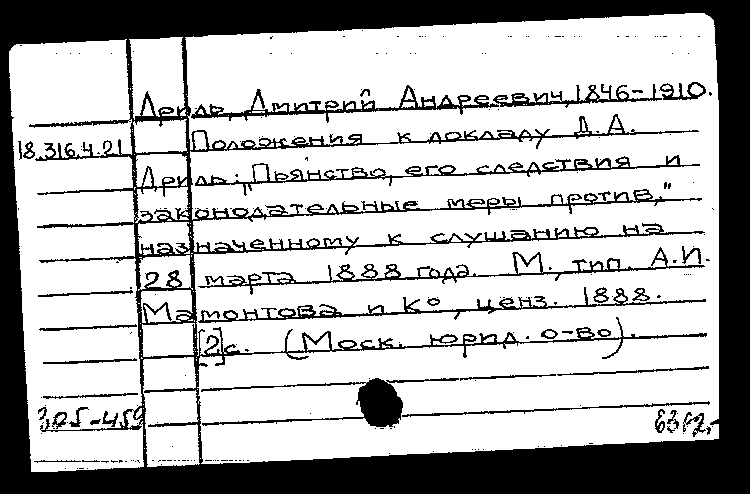 Дриль, Дмитрий Андреевич, 1846-1910.
18.316.4.21 Положения к докладу Д.А.
Дриль: „Пьянство, его следствия и
законодательные меры против,"
назначенному к слушанию на
28 марта 1888 года. М., тип. А.И.
Мамонтова и К°, ценз. 1888.
[2]с. (Моск. юрид. о-во).
305-459